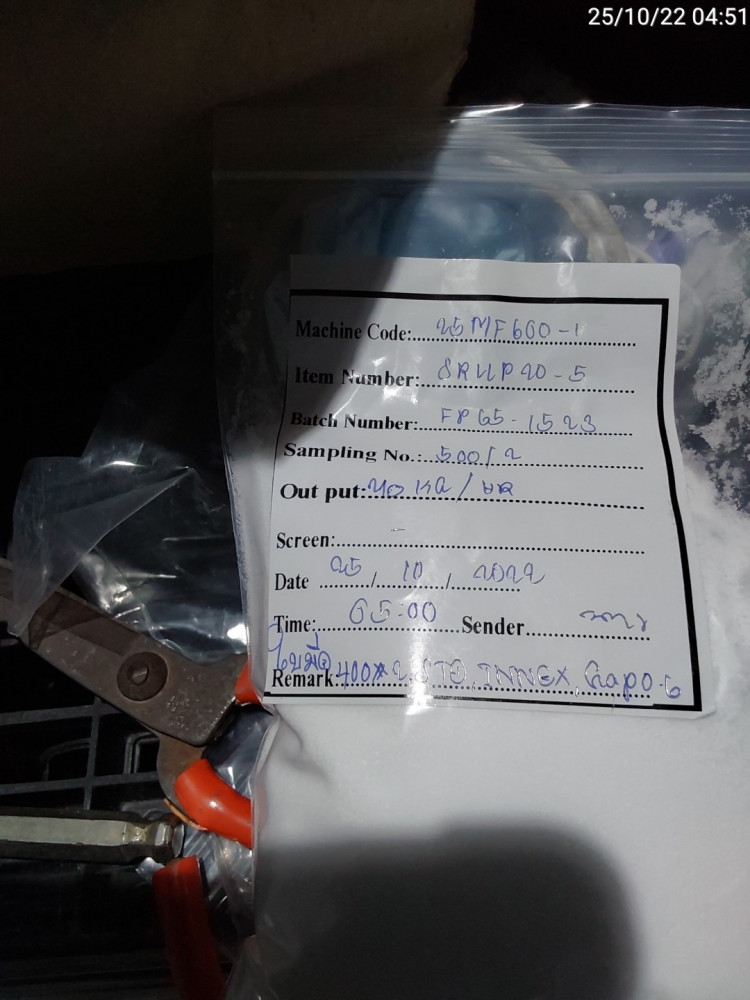 25/10/22 04:51
Machine Code: 25MF600-1
Item Number: SRUP20-5
Batch Number: FP65-1523
Sampling No.: 500/2
Out put: 40 KG/HR
Screen: -
Date 25 / 10 / 2022
Time: 05:00 Sender
ใบมีด
Remark: 400*2, STD, INNEX, Gap 0.6